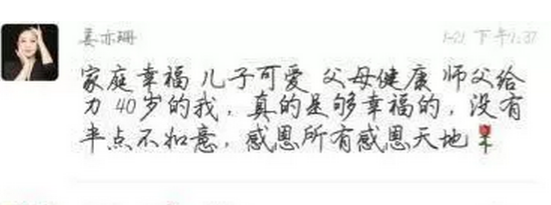 姜亦珊
1-21 下午1:37
家庭幸福 儿子可爱 父母健康 师父给
力 40岁的我，真的是够幸福的，没有
半点不如意，感恩所有感恩天地